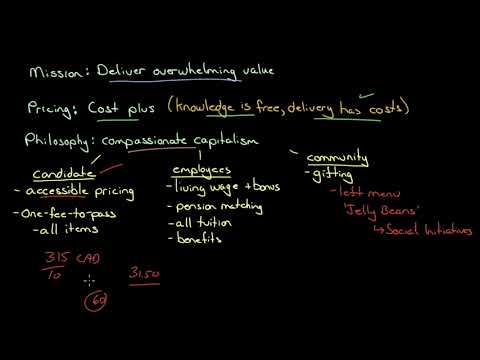 Mission: Deliver overwhelming value
Pricing: Cost plus (knowledge is free, delivery has costs)
Philosophy: compassionate capitalism
candidate
- accessible pricing
- One-fee-to-pass
- all items
employees
- living wage + bonus
- pension matching
- all tuition
- benefits
community
- gifting
- left menu
'Jelly Beans'
↳ Social Initiatives
315 CAD
10
31.50
60